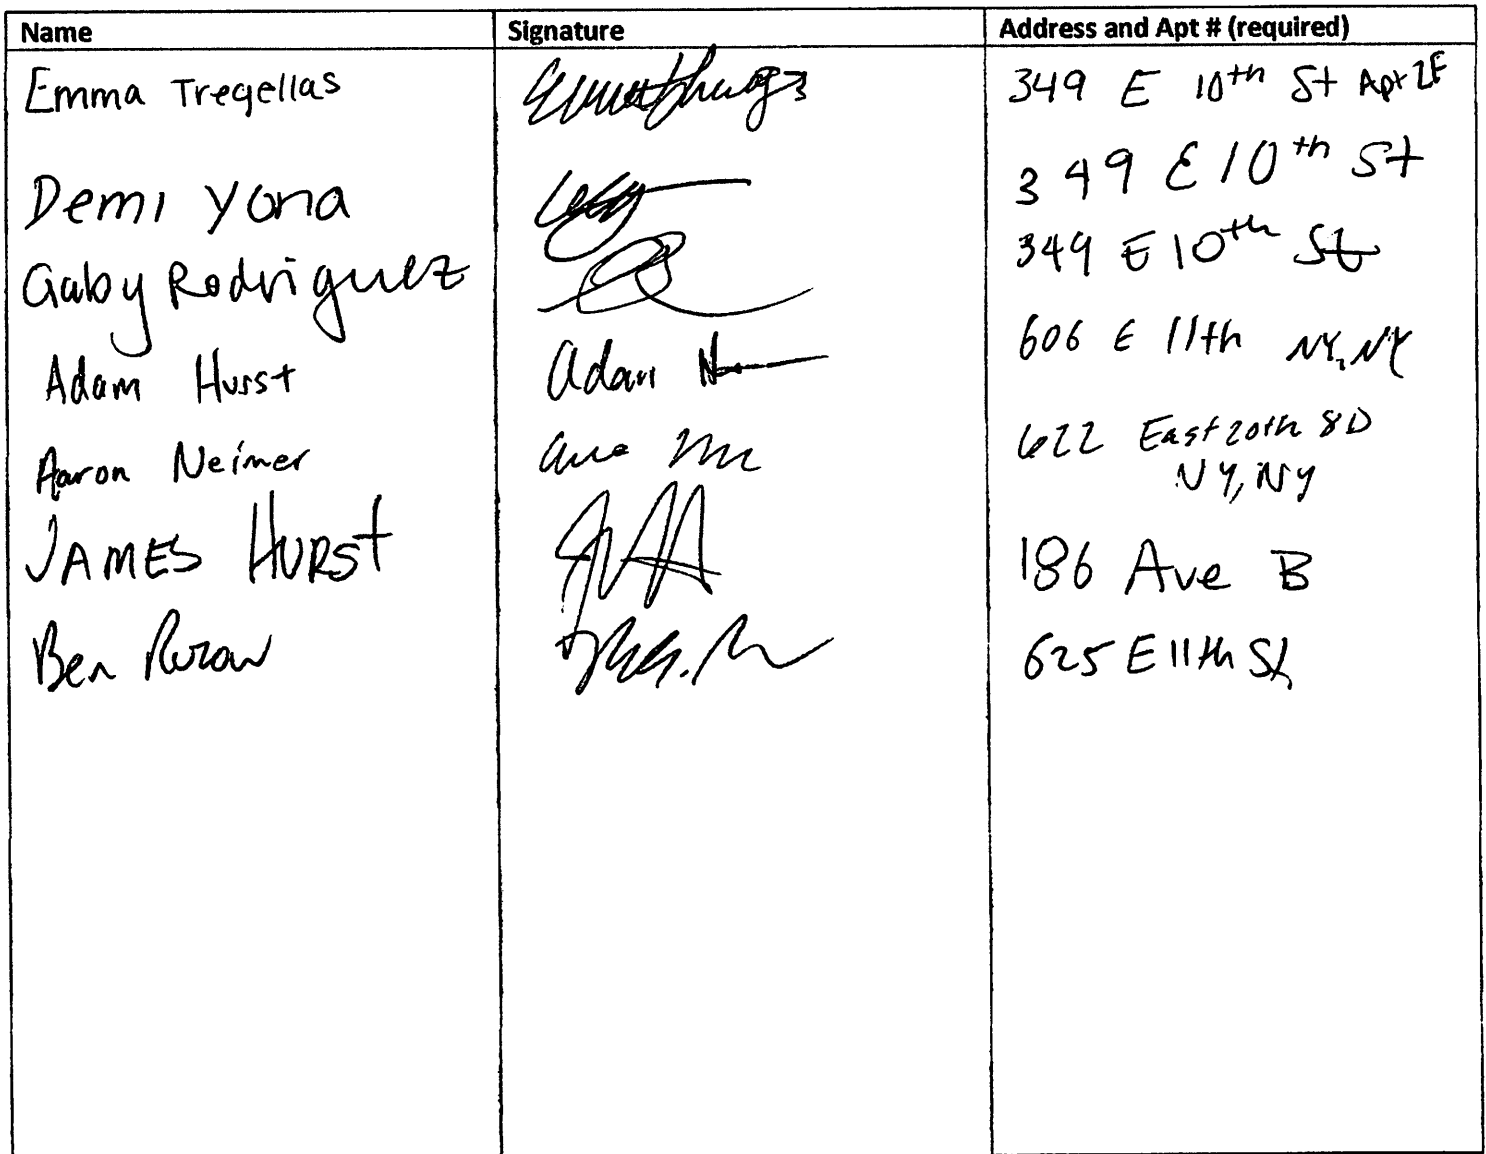 Name Signature Address and Apt # (required)
Emma Tregellas 349 E 10th St Apt 2F
Demi Yona 349 E 10th St
Gaby Rodriguez 349 E 10th St
Adam Hurst Adam 606 E 11th NY, NY
Aaron Neimer 622 East 20th 8D
NY, NY
JAMES HURST 186 Ave B
Ben 625 E 11th St